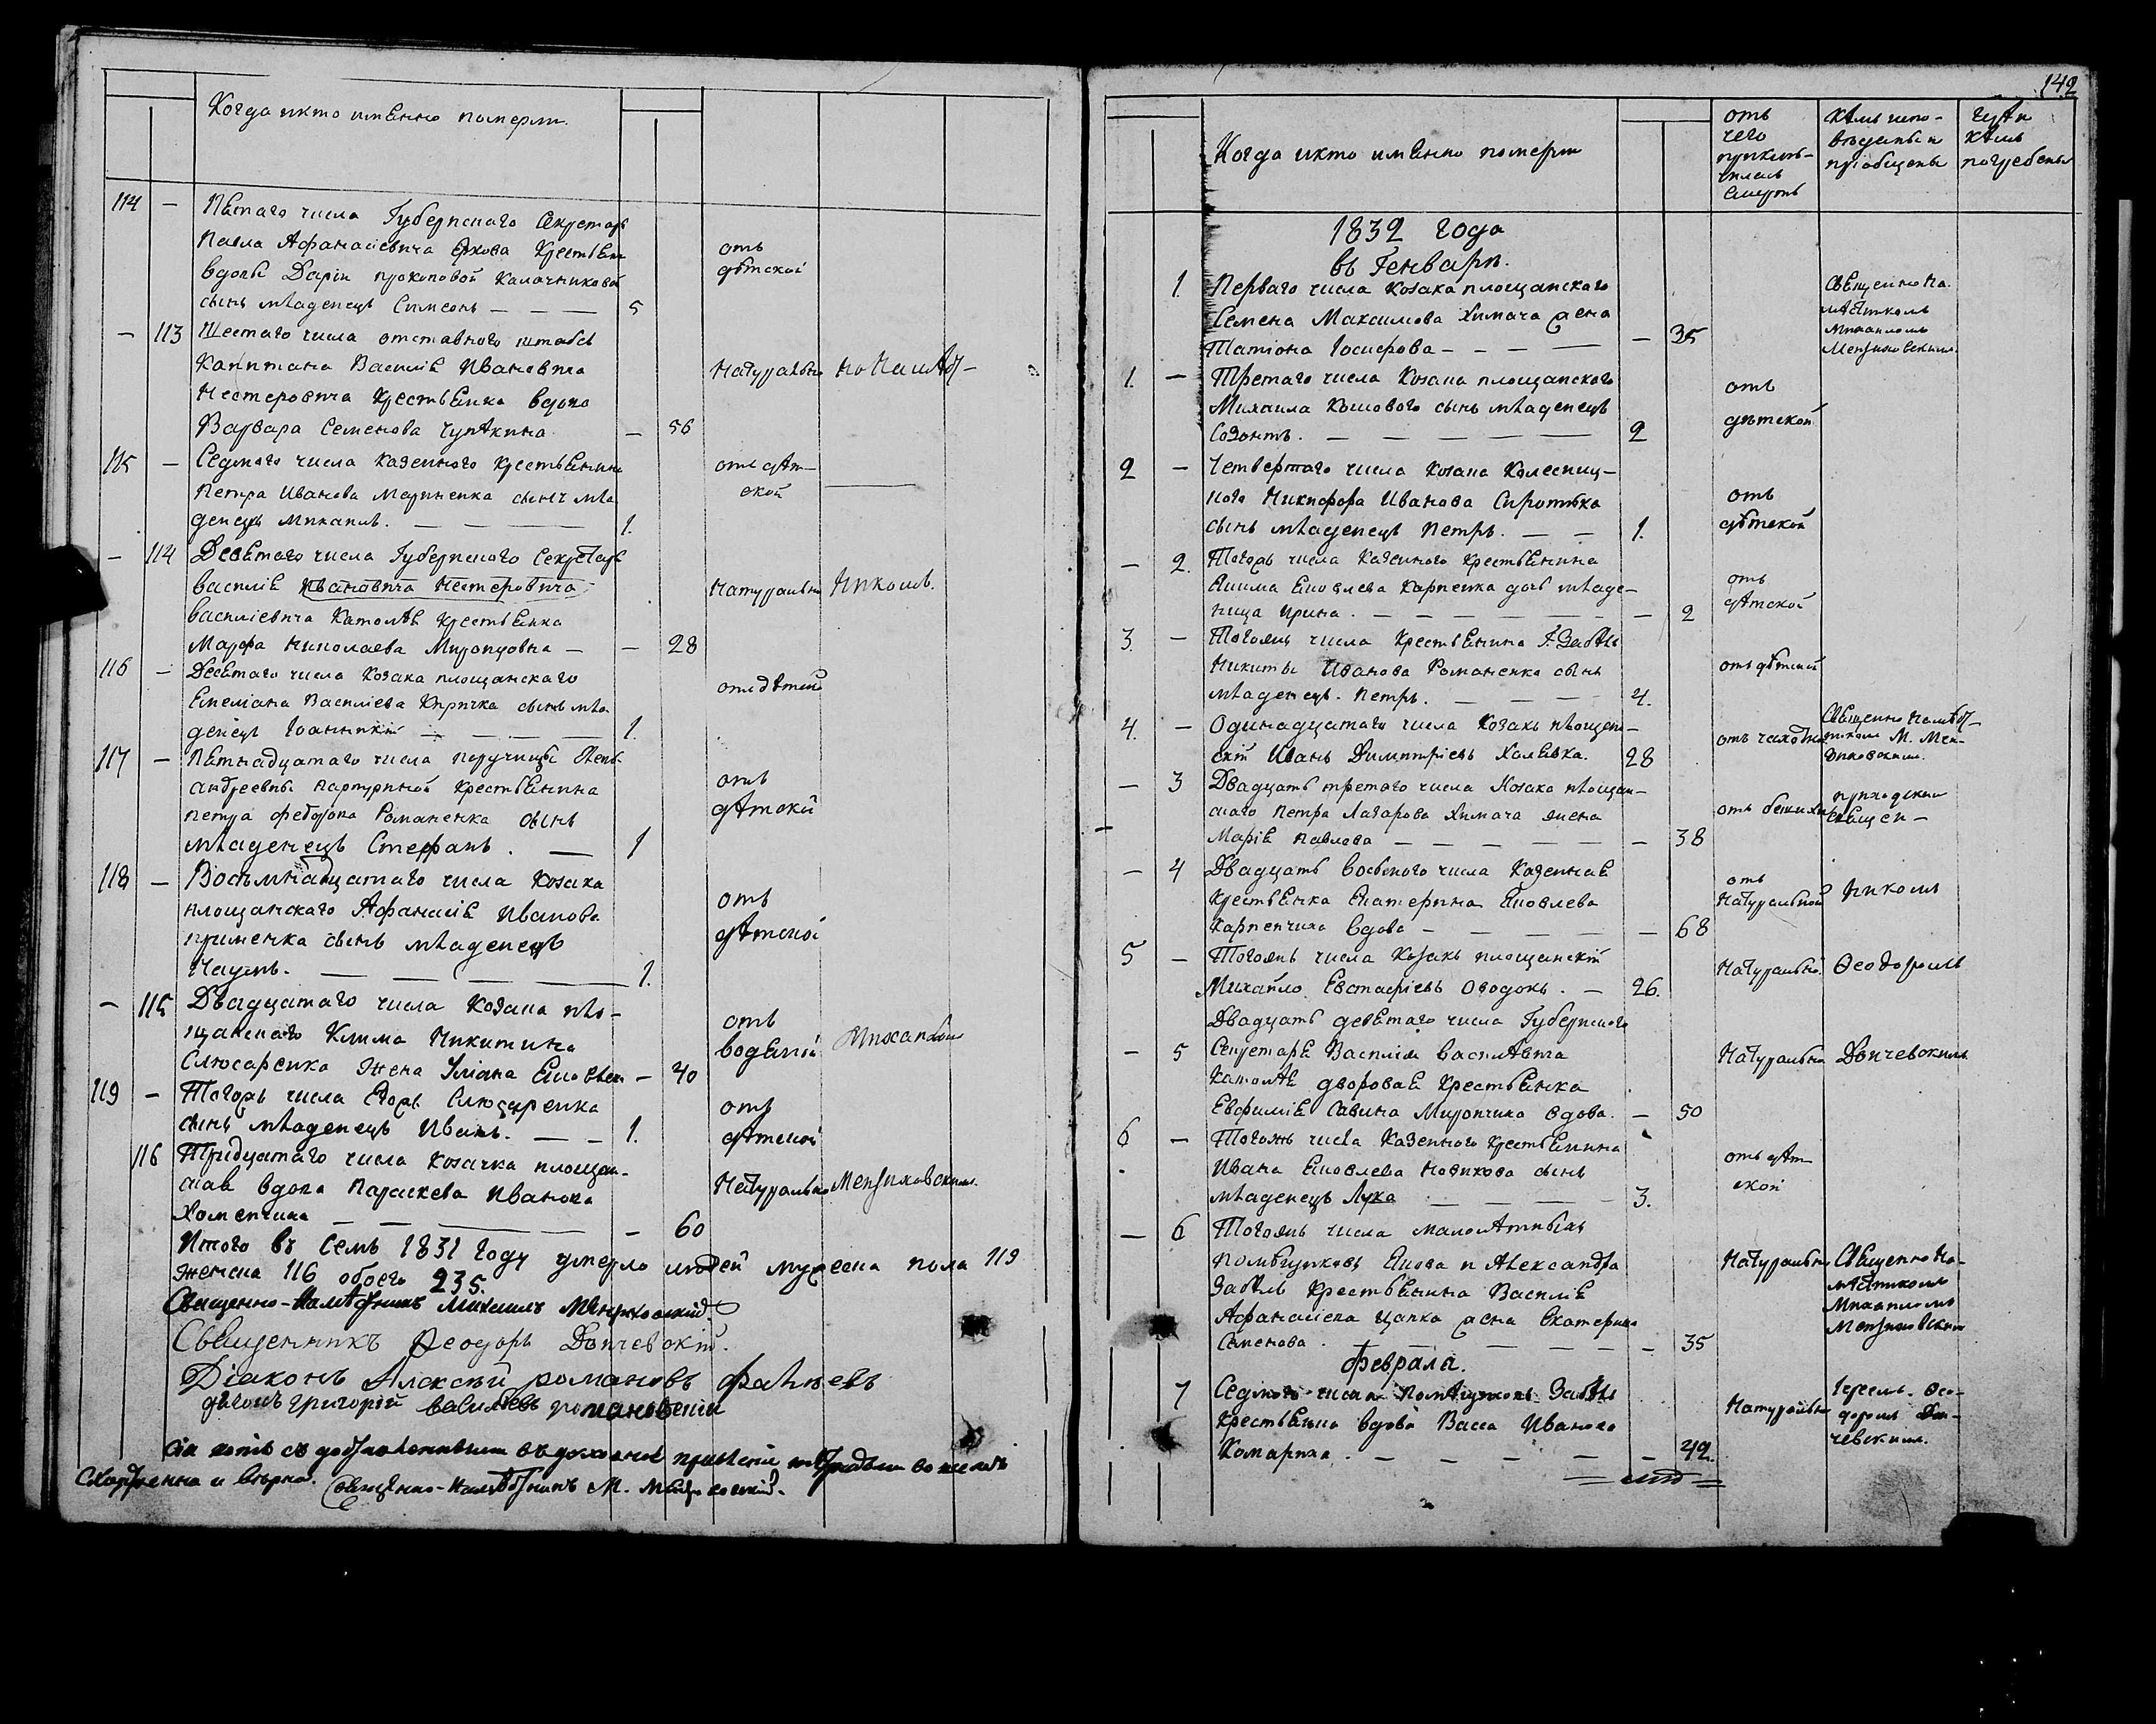 Когда и кто имѧнно померли.
114 — Пѧтаго числа Губернского Секретарѧ
Павла Афанасіевича Крестьѧн
вдовы Даріи Прокоповой Калачниковой
сынъ младенецъ Симеонъ — — — 5
отъ
дѣтской
— 113 Шестаго числа отставного штабсъ
Капитана Василіѧ Ивановича
Нестеровича Крестьѧнка вдова
Варвара Семенова — 56
Натурально
115 — Седмаго числа казенного крестьѧнина
Петра Иванова Мариненка сынъ мла
денецъ Михаилъ. — — — 1.
отъ дѣт—
ской
— 114 Девѧтаго числа Губернского Секретарѧ
Василіѧ Ивановича Нестеровича
Василіевича Крестьѧнка
Марфа Николаева Миронцовна — — 28
Натурально Никомъ.
116 — Десѧтаго числа Козака площанскаго
Емеліана Василіева Киричка сынъ мла
денецъ Іоанникій — — — 1.
отъ дѣтской
117 — Пѧтнадцатаго числа поручицы
Андреевны Крестьѧнина
Петра Федорова Романенка сынъ
младенецъ Стефанъ . — 1
отъ
дѣтской
118 — Восѣмнадцатаго числа Козака
площанскаго Афанасіѧ Иванова
сынъ младенецъ
Наумъ. — — — — 1.
отъ
дѣтской
— 115 Двадцатаго числа Козака пло—
щанскаго Клима Никитина
Слюсаренка жена Уліана — 40
отъ
водѧной Михаиломъ
119 — Тогожъ числа Егора Слюсаренка
сынъ младенецъ Иванъ. — — 1.
отъ
дѣтской
116 Тридцатаго числа козачка площан—
скаѧ вдова Параскева Иванова
Хоменчиха — — — — 60
Натурально Мензиховскимъ.
Итого въ семъ 1831 году умерло людей мужеска пола 119
женска 116 обоего 235.
Священно-Намѣстникъ Михаилъ
Свѧщенникъ Феодоръ Дончевскій.
Діаконъ Алексѣй романовъ
Григорій василіевъ
Священно-Намѣстникъ М.
142
Когда и кто имѧнно померли
отъ
чего
приклю—
чилась
смерть
кѣмъ испо—
вѣданы и
пріобщены
гдѣ и
кѣмъ
погребены
1832 года
въ Генварѣ.
1. Перваго числа Козака площанскаго
Семена Максимова Химача жена
Татіона Іосифова — — — — — 35
Свѧщенно На.
мѣстникомъ
Михаиломъ
Мензиховскимъ.
1. — Третаго числа Козака площанского
Михаила Кошового сынъ младенецъ
Созонтъ. — — — — — 2
отъ
дѣтской
2 — Четвертаго числа Козака
Никифора Иванова Сиротѣка
сынъ младенецъ Петръ. — — 1.
отъ
дѣтской
— 2. Тогожъ числа Казенного Крестьѧнина
Карпенка дочь младе—
ница Ирина. — — — — — — 2
отъ
дѣтской
3. — Тогожъ числа Крестьѧнина
Никиты Иванова Романенка сынъ
младенецъ. Петръ. — — — 4.
отъ дѣтской
4. — Одинадцатаго числа Козакъ площан—
скій Иванъ Димитріевъ Халѧвка. 28
отъ чахотки
Священно Намѣст—
никомъ М. Мен—
3 Двадцать третого числа Козака площан—
скаго Петра Лазарова Химача жена
Маріѧ Павлова — — — — — — 38
Свѧщен—
— 4 Двадцать восьмого числа Казеннаѧ
крестьѧнка Екатерина Яковлева
Карпенчиха вдова — — — — — 68
отъ
Натуральной Никомъ
5 — Тогожъ числа Козакъ площанскій
Михайло Евстафіевъ Ободокъ. — 26.
Натурально. Феодоромъ
Двадцать девѧтаго числа Губернского
— 5 Секретарѧ Василіѧ
дворовая Крестьѧнка
Евфиміѧ Савина Мирончиха вдова. — 50
Натурально Дончевскимъ
6 — Тогожъ числа Казенного Крестьѧнина
Ивана Яковлева Новикова сынъ
младенецъ Лука — — — — 3.
отъ дѣт—
ской
— 6 Тогожъ числа малолѣтныхъ
помѣщиковъ Якова и Александра
Забѣлъ Крестьѧнина Василіѧ
Афанасіева Цапка жена Екатерина
Семенова . — — — — — — 35
Натурально Свѧщенно На—
мѣстникомъ
Михаиломъ
Мензиховскимъ
февралѧ.
7 Седмого числа помѣщиковъ Забѣлъ
Крестьѧнка вдова Васса Иванова
Комариха . — — — — — — 42.
Натурально
Іереем. Фео—
доромъ Дон—
чевскимъ.